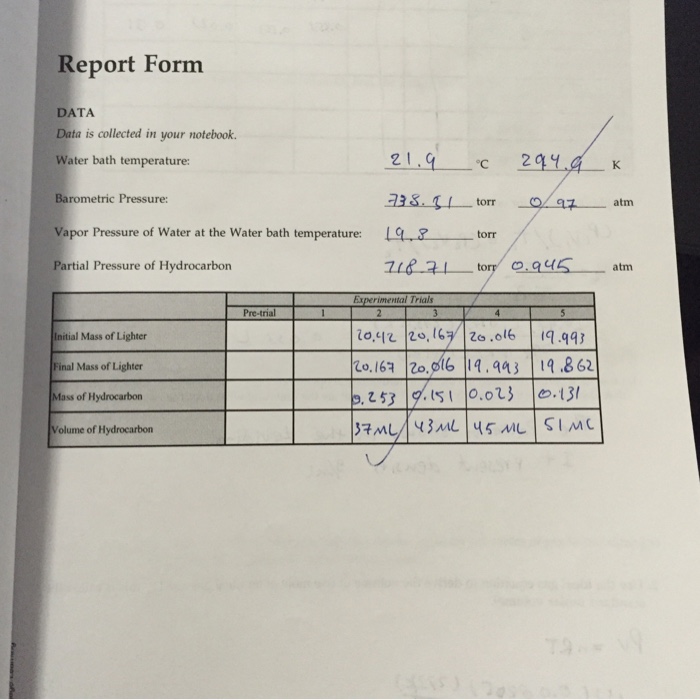 Report Form
DATA
Data is collected in your notebook.
Water bath temperature: 21.9 °C 294.9 K
Barometric Pressure: 738.51 torr 0.97 atm
Vapor Pressure of Water at the Water bath temperature: 19.8 torr
Partial Pressure of Hydrocarbon 718.71 torr 0.945 atm
Experimental Trials
Pre-trial 1 2 3 4 5
Initial Mass of Lighter 20.42 20.167 20.016 19.993
Final Mass of Lighter 20.167 20.016 19.993 19.862
Mass of Hydrocarbon 0.253 0.151 0.023 0.131
Volume of Hydrocarbon 37mL 43mL 45mL 51mL